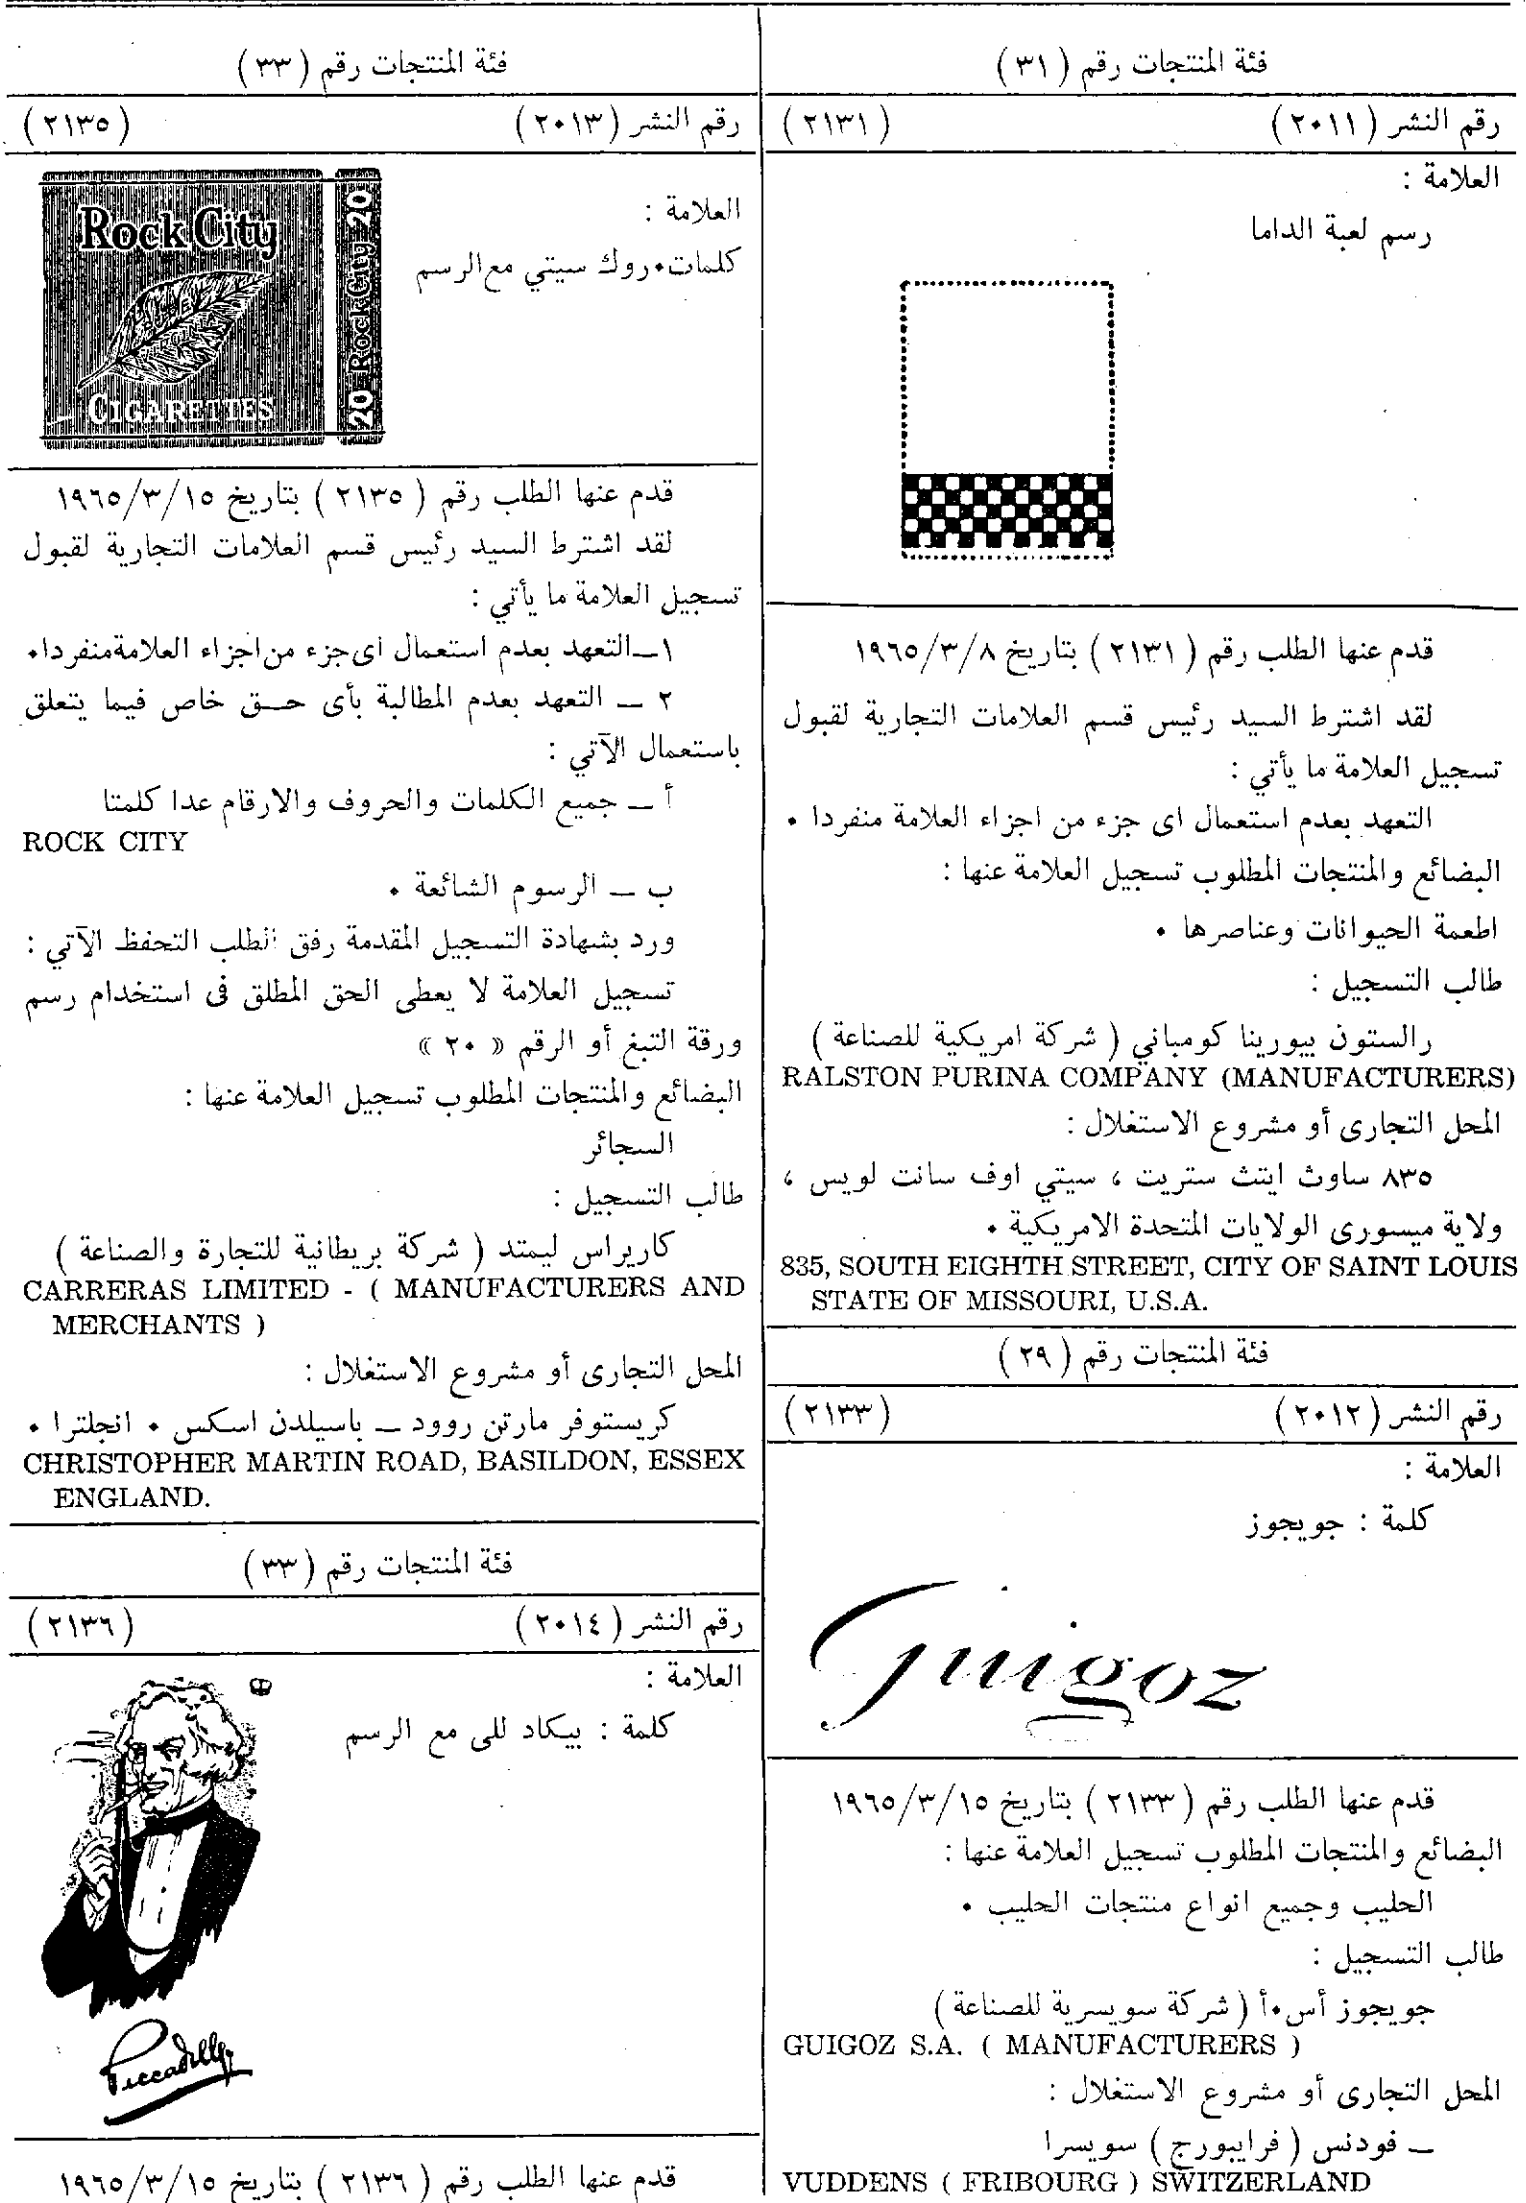 فئة المنتجات رقم ( ٣١ )
رقم النشر ( ٢٠١١ ) ( ٢١٣١ )
العلامة :
رسم لعبة الداما
قدم عنها الطلب رقم ( ٢١٣١ ) بتاريخ ١٩٦٥/٣/٨
لقد اشترط السيد رئيس قسم العلامات التجارية لقبول
تسجيل العلامة ما يأتي :
التعهد بعدم استعمال اى جزء من اجزاء العلامة منفردا ٠
البضائع والمنتجات المطلوب تسجيل العلامة عنها :
اطعمة الحيوانات وعناصرها ٠
طالب التسجيل :
رالستون بيورينا كومباني ( شركة امريكية للصناعة )
RALSTON PURINA COMPANY (MANUFACTURERS)
المحل التجارى أو مشروع الاستغلال :
٨٣٥ ساوث ايتث ستريت ، سيتي اوف سانت لويس ،
ولاية ميسورى الولايات المتحدة الامريكية ٠
835, SOUTH EIGHTH STREET, CITY OF SAINT LOUIS
STATE OF MISSOURI, U.S.A.
فئة المنتجات رقم ( ٢٩ )
رقم النشر ( ٢٠١٢ ) ( ٢١٣٣ )
العلامة :
كلمة : جويجوز
Guigoz
قدم عنها الطلب رقم ( ٢١٣٣ ) بتاريخ ١٩٦٥/٣/١٥
البضائع والمنتجات المطلوب تسجيل العلامة عنها :
الحليب وجميع انواع منتجات الحليب ٠
طالب التسجيل :
جويجوز أس٠أ ( شركة سويسرية للصناعة )
GUIGOZ S.A. ( MANUFACTURERS )
المحل التجارى أو مشروع الاستغلال :
ــ فودنس ( فرايبورج ) سويسرا
VUDDENS ( FRIBOURG ) SWITZERLAND
فئة المنتجات رقم ( ٣٣ )
رقم النشر ( ٢٠١٣ ) ( ٢١٣٥ )
العلامة :
كلمات٠روك سيتي مع الرسم
Rock City
CIGARETTES
20 Rock City 20
قدم عنها الطلب رقم ( ٢١٣٥ ) بتاريخ ١٩٦٥/٣/١٥
لقد اشترط السيد رئيس قسم العلامات التجارية لقبول
تسجيل العلامة ما يأتي :
١ــالتعهد بعدم استعمال اى جزء من اجزاء العلامة منفردا٠
٢ ــ التعهد بعدم المطالبة بأى حــق خاص فيما يتعلق
باستعمال الآتي :
أ ــ جميع الكلمات والحروف والارقام عدا كلمتا
ROCK CITY
ب ــ الرسوم الشائعة ٠
ورد بشهادة التسجيل المقدمة رفق الطلب التحفظ الآتي :
تسجيل العلامة لا يعطى الحق المطلق فى استخدام رسم
ورقة التبغ أو الرقم « ٢٠ »
البضائع والمنتجات المطلوب تسجيل العلامة عنها :
السجائر
طالب التسجيل :
كاريراس ليمتد ( شركة بريطانية للتجارة والصناعة )
CARRERAS LIMITED - ( MANUFACTURERS AND
MERCHANTS )
المحل التجارى أو مشروع الاستغلال :
كريستوفر مارتن روود ــ باسيلدن اسكس ٠ انجلترا ٠
CHRISTOPHER MARTIN ROAD, BASILDON, ESSEX
ENGLAND.
فئة المنتجات رقم ( ٣٣ )
رقم النشر ( ٢٠١٤ ) ( ٢١٣٦ )
العلامة :
كلمة : بيكاد للى مع الرسم
Piccadilly
قدم عنها الطلب رقم ( ٢١٣٦ ) بتاريخ ١٩٦٥/٣/١٥